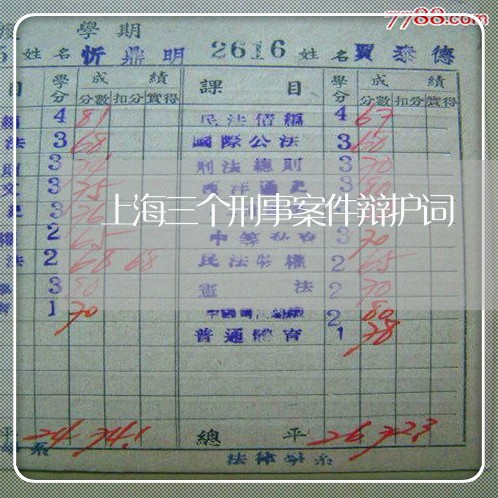 7788.com
學期
姓名 忻鼎明 2616 姓名 賈泰德
目 學分 成績 課目 學分 成績
分數 扣分 實得 分數 扣分 實得
4 81 民法債編 4 67
法 3 68 國際公法 3 60
3 刑法總則 3 70
3 75 西洋通史 3 80
上海三个刑事案件辩护词
2 65 3 70
法 2 68 68 民法物權 2 65
3 80 憲法 2 70
1 70 2 80
普通體育 1 78
平 24 74.1 總平 26 72.3
系 法律學系